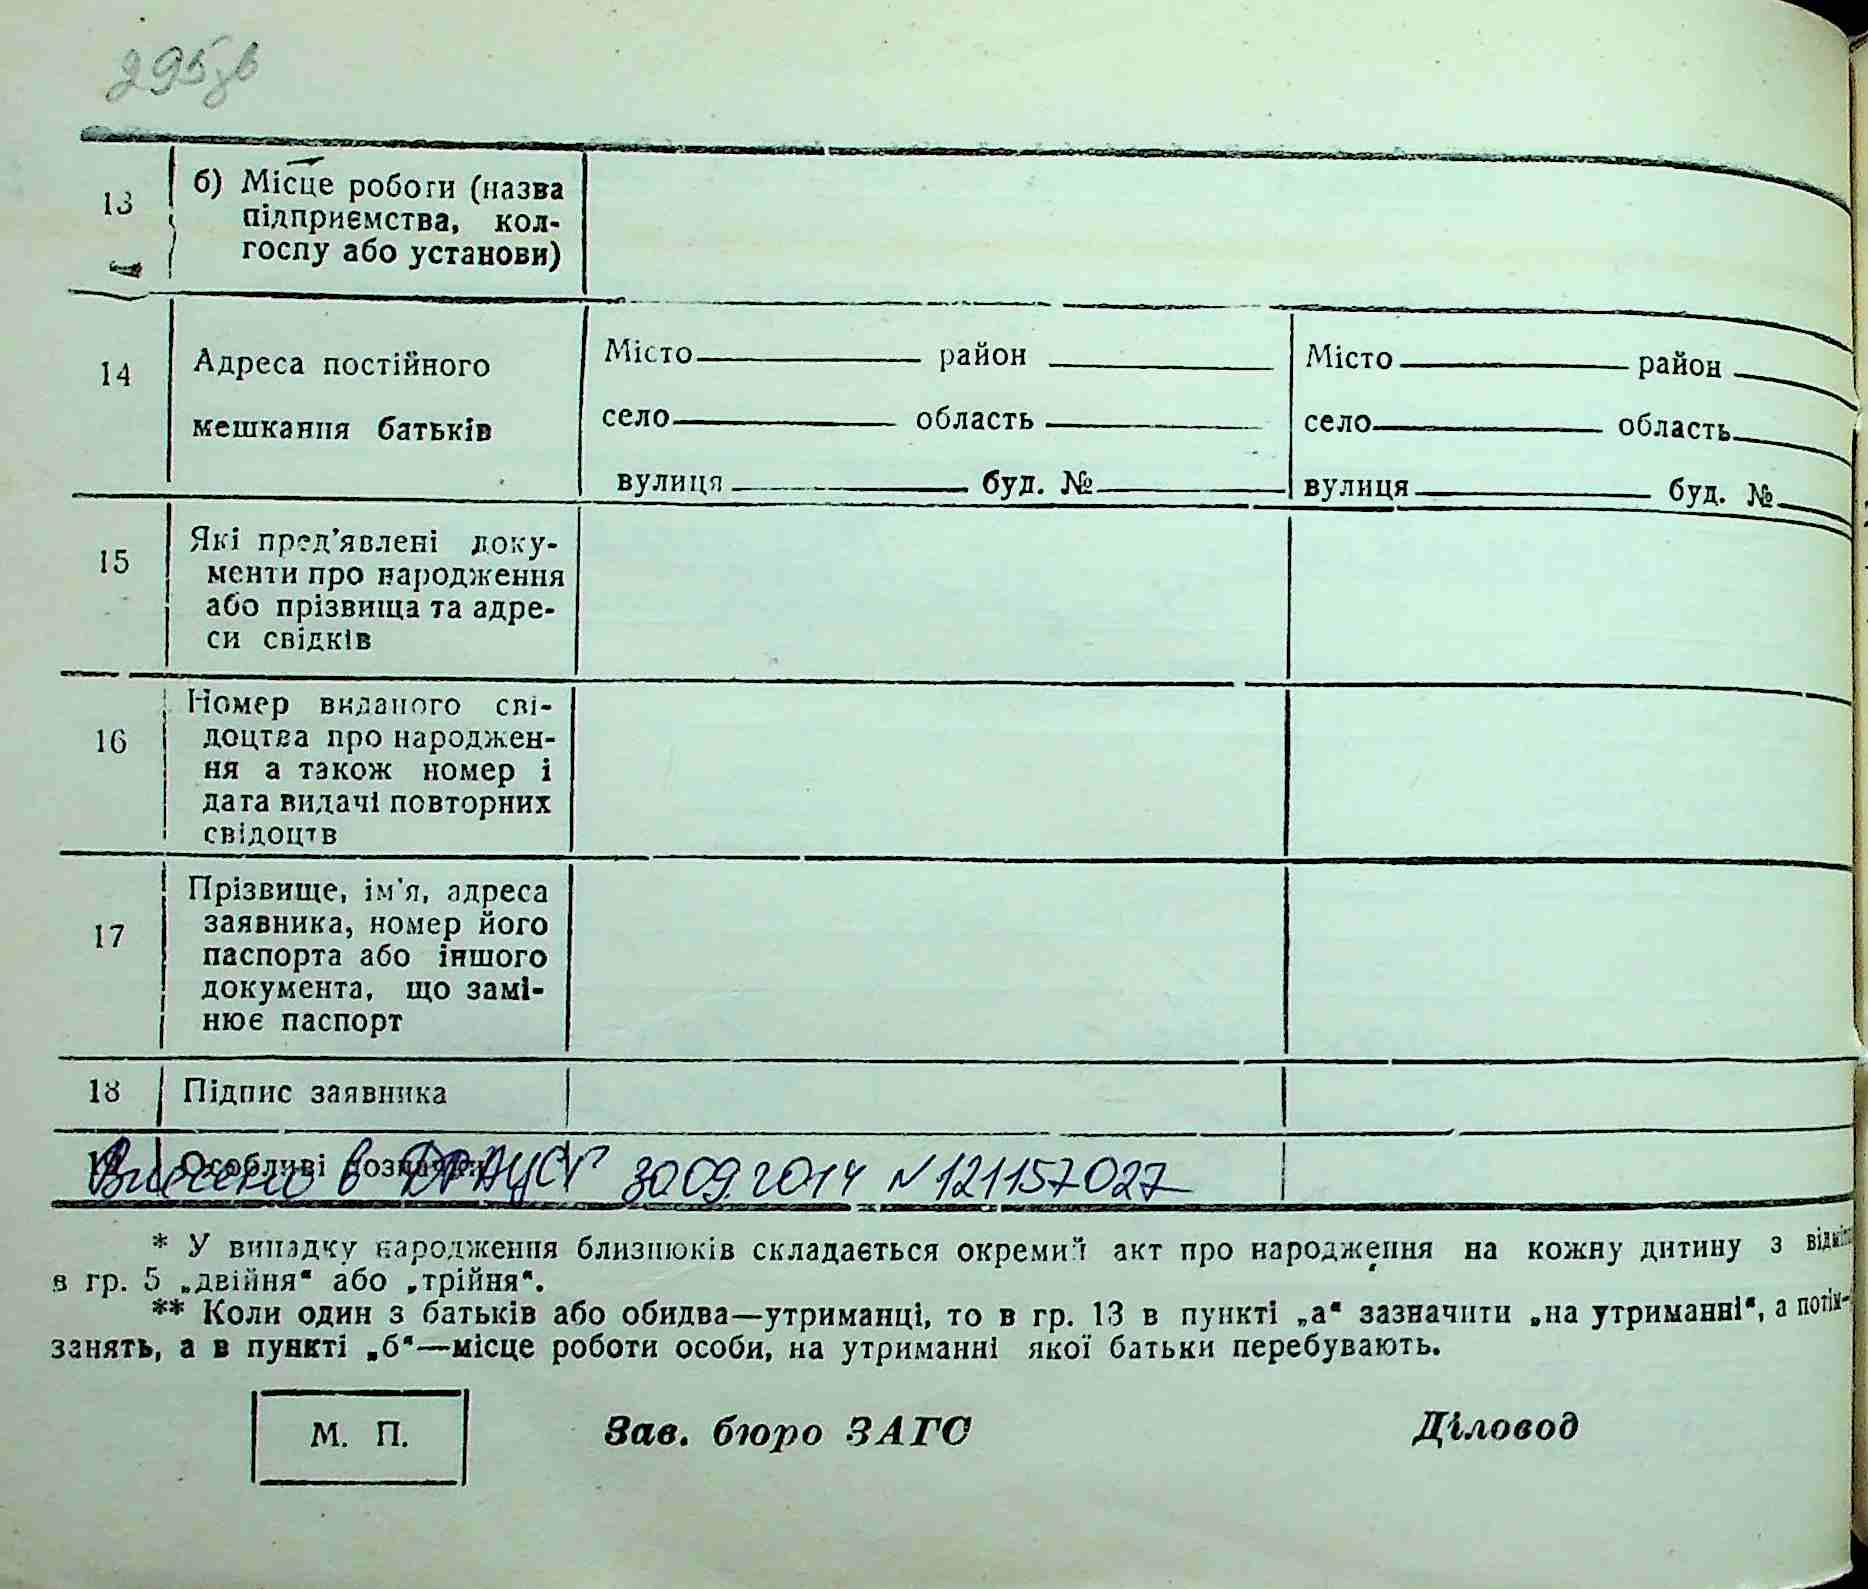 295зв
13 б) Місце роботи (назва
підприємства, кол-
госпу або установи)
14 Адреса постійного
мешкання батьків
Місто район
село область
вулиця буд. №
Місто район
село область
вулиця буд. №
15 Які пред'явлені доку-
менти про народження
або прізвища та адре-
си свідків
16 Номер виданого сві-
доцтва про народжен-
ня а також номер і
дата видачі повторних
свідоцтв
17 Прізвище, ім'я, адреса
заявника, номер його
паспорта або іншого
документа, що замі-
нює паспорт
18 Підпис заявника
Особливі
Внесено в ДРАЦСГ 30 09. 2014 N 121157027
* У випадку народження близнюків складається окремий акт про народження на кожну дитину з
в гр. 5 „двійня“ або „трійня“.
** Коли один з батьків або обидва—утриманці, то в гр. 13 в пункті „а“ зазначити „на утриманні“, а потім-
занять, а в пункті „б“—місце роботи особи, на утриманні якої батьки перебувають.
М. П. Зав. бюро ЗАГС Діловод